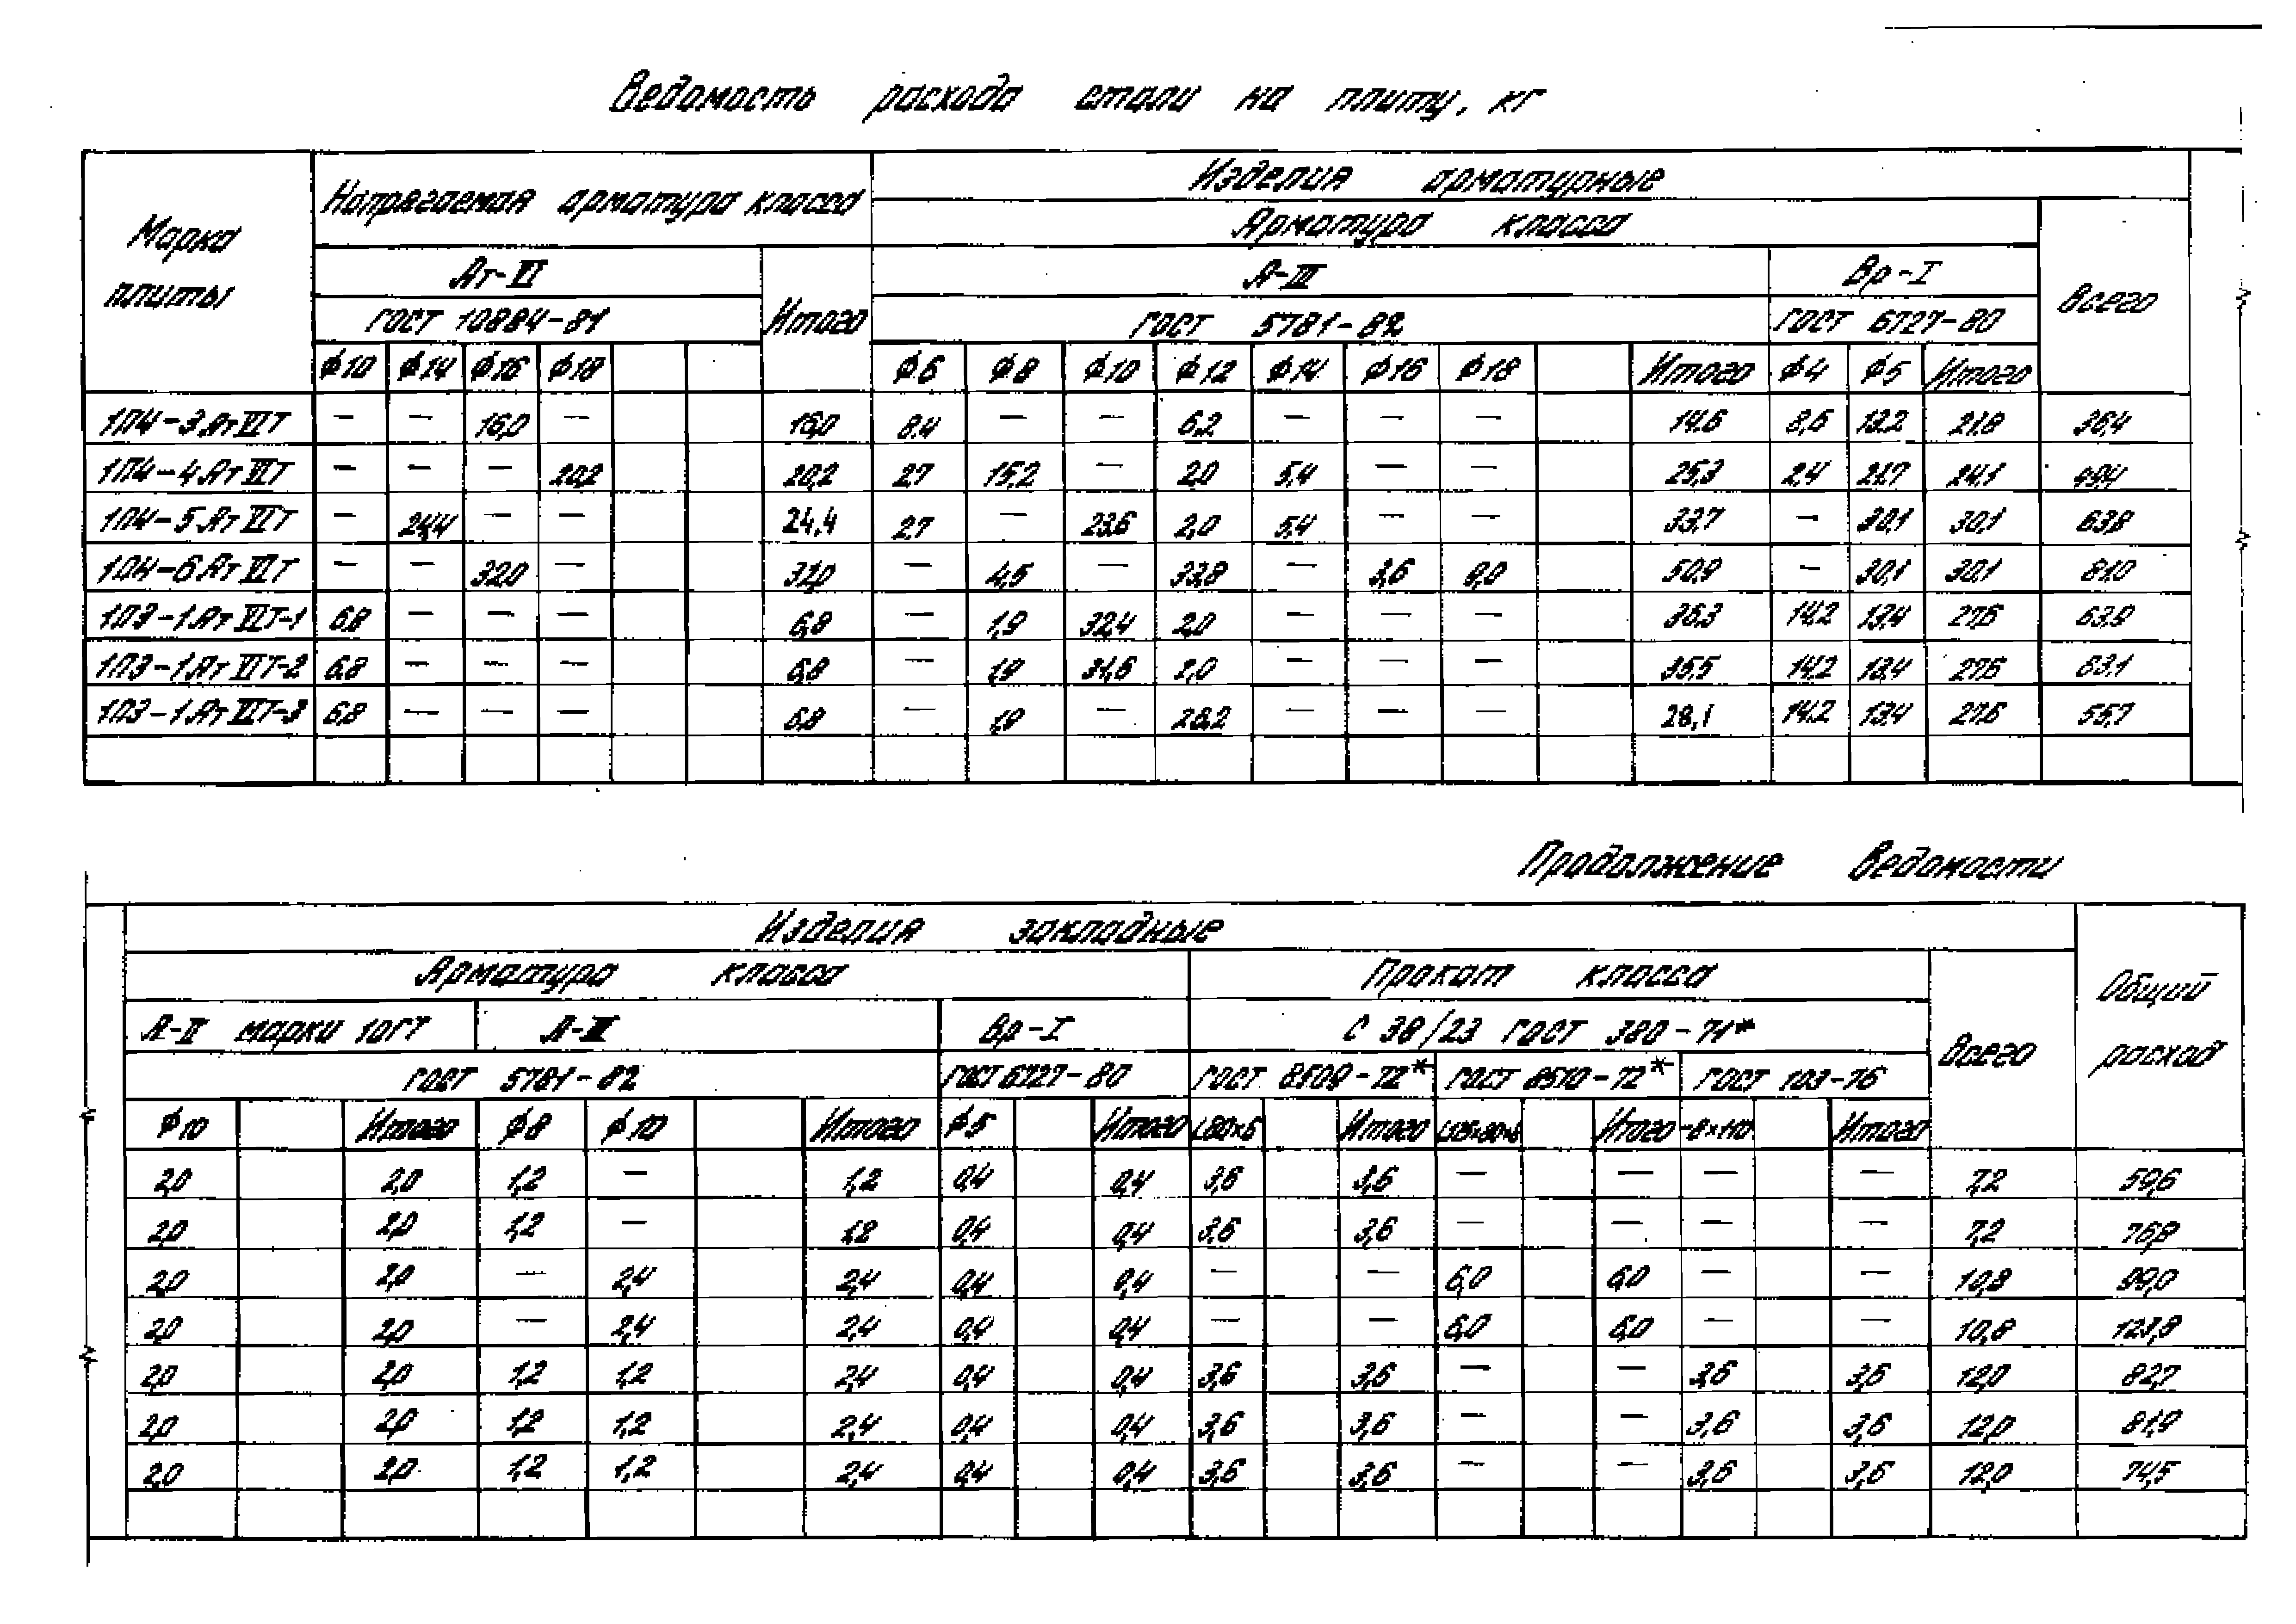 Ведомость расхода стали на плиту, кг
Марка плиты
Напрягаемая арматура класса
Изделия арматурные
Арматура класса
Ат-VI
Итого
А-III
Вр-I
Всего
ГОСТ 10884-81
ГОСТ 5781-82
ГОСТ 6727-80
ϕ10 ϕ14 ϕ16 ϕ18 ϕ6 ϕ8 ϕ10 ϕ12 ϕ14 ϕ16 ϕ18 Итого ϕ4 ϕ5 Итого
1П4-3.АтVIТ — — 16,0 — 16,0 8.4 — — 6,2 — — — 14.6 8,6 13.2 21.8 36,4
1П4-4.АтVIТ — — — 20,2 20,2 2,7 15,2 — 2,0 5,4 — — 25,3 2,4 21,7 24,1 49,4
1П4-5.АтVIТ — 24,4 — — 24,4 2,7 — 23,6 2,0 5,4 — — 33,7 — 30,1 30,1 63,8
1П4-6.АтVIТ — — 32,0 — 32,0 — 4,5 — 33,8 — 3,6 9,0 50,9 — 30,1 30,1 81,0
1П3-1.АтVIТ-1 6,8 — — — 6,8 — 1,9 32,4 2,0 — — — 36.3 14,2 13,4 27,6 63,9
1П3-1.АтVIТ-2 6,8 — — — 6,8 — 1,9 31,6 2,0 — — — 35,5 14,2 13,4 27,6 63,1
1П3-1.АтVIТ-3 6,8 — — — 6,8 — 1,9 — 26,2 — — — 28,1 14,2 13,4 27,6 55,7
Продолжение ведомости
Изделия закладные
Общий расход
Арматура класса
Прокат класса
Всего
А-II марки 10ГТ
А-III
Вр-I
С 38/23 ГОСТ 380-71*
ГОСТ 5781-82
ГОСТ 6727-80
ГОСТ 8509-72*
ГОСТ 8510-72*
ГОСТ 103-76
ϕ10 Итого ϕ8 ϕ10 Итого ϕ5 Итого L80×6 Итого Итого -8×110 Итого
2,0 2,0 1,2 — 1,2 0,4 0,4 3,6 3,6 — — — — 7,2 59,6
2,0 2,0 1,2 — 1,2 0,4 0,4 3,6 3,6 — — — — 7,2 76,8
2,0 2,0 — 2,4 2,4 0,4 0,4 — — 6,0 6,0 — — 10,8 99,0
2,0 2,0 — 2,4 2,4 0,4 0,4 — — 6,0 6,0 — — 10,8 123,8
2,0 2,0 1,2 1,2 2,4 0,4 0,4 3,6 3,6 — — 3,6 3,6 12,0 82,7
2,0 2,0 1,2 1,2 2,4 0,4 0,4 3,6 3,6 — — 3,6 3,6 12,0 81,9
2,0 2,0 1,2 1,2 2,4 0,4 0,4 3,6 3,6 — — 3,6 3,6 12,0 74,5